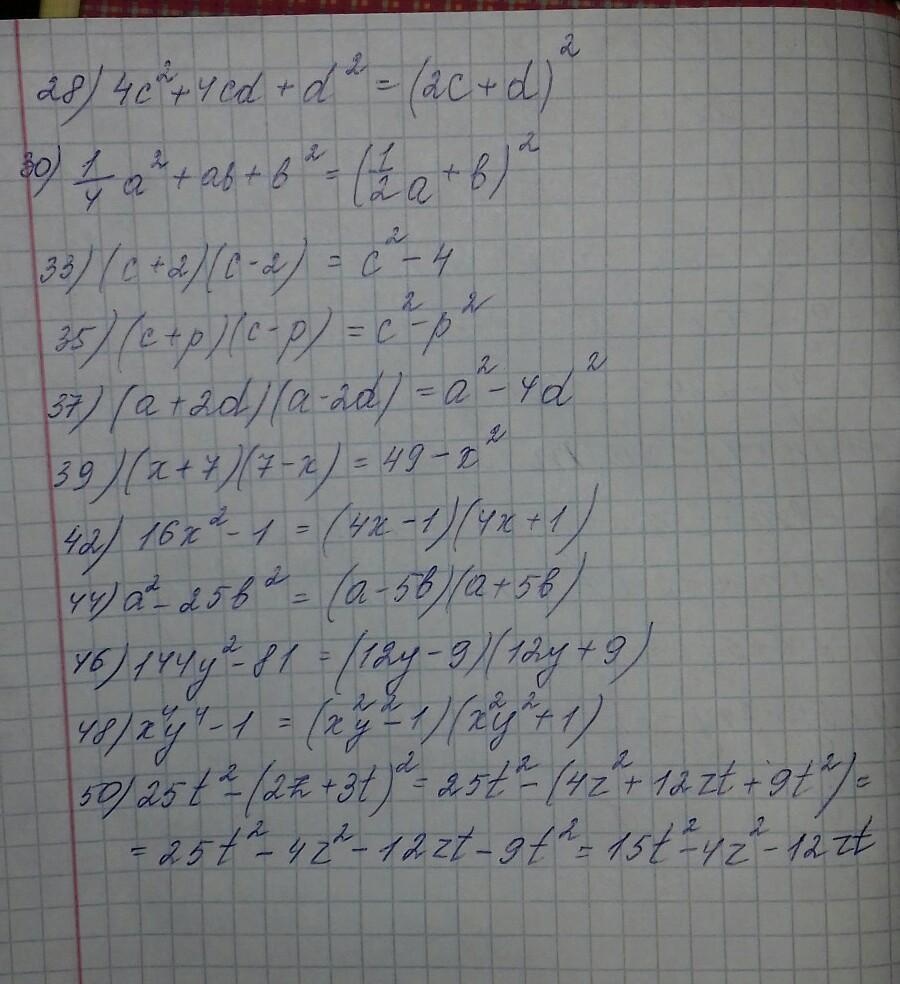 28) 4c²+4cd+d²=(2c+d)²
30) 1/4 a²+ab+b²=(1/2 a+b)²
33) (c+2)(c-2) = c²-4
35) (c+p)(c-p) = c²-p²
37) (a+2d)(a-2d) = a²-4d²
39) (x+7)(7-x) = 49-x²
42) 16x²-1 = (4x-1)(4x+1)
44) a²-25b² = (a-5b)(a+5b)
46) 144y²-81 = (12y-9)(12y+9)
48) x⁴y⁴-1 = (x²y²-1)(x²y²+1)
50) 25t²-(2z+3t)²=25t²-(4z²+12zt+9t²)=
=25t²-4z²-12zt-9t²=15t²-4z²-12zt